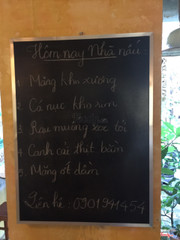 Hôm nay Nhà nấu:
1. Măng kho xương
2. Cá nục kho
3. Rau muống xào tỏi
4. Canh cải thịt bằm
5. Măng ớt dầm
Liên hệ: 0901941454